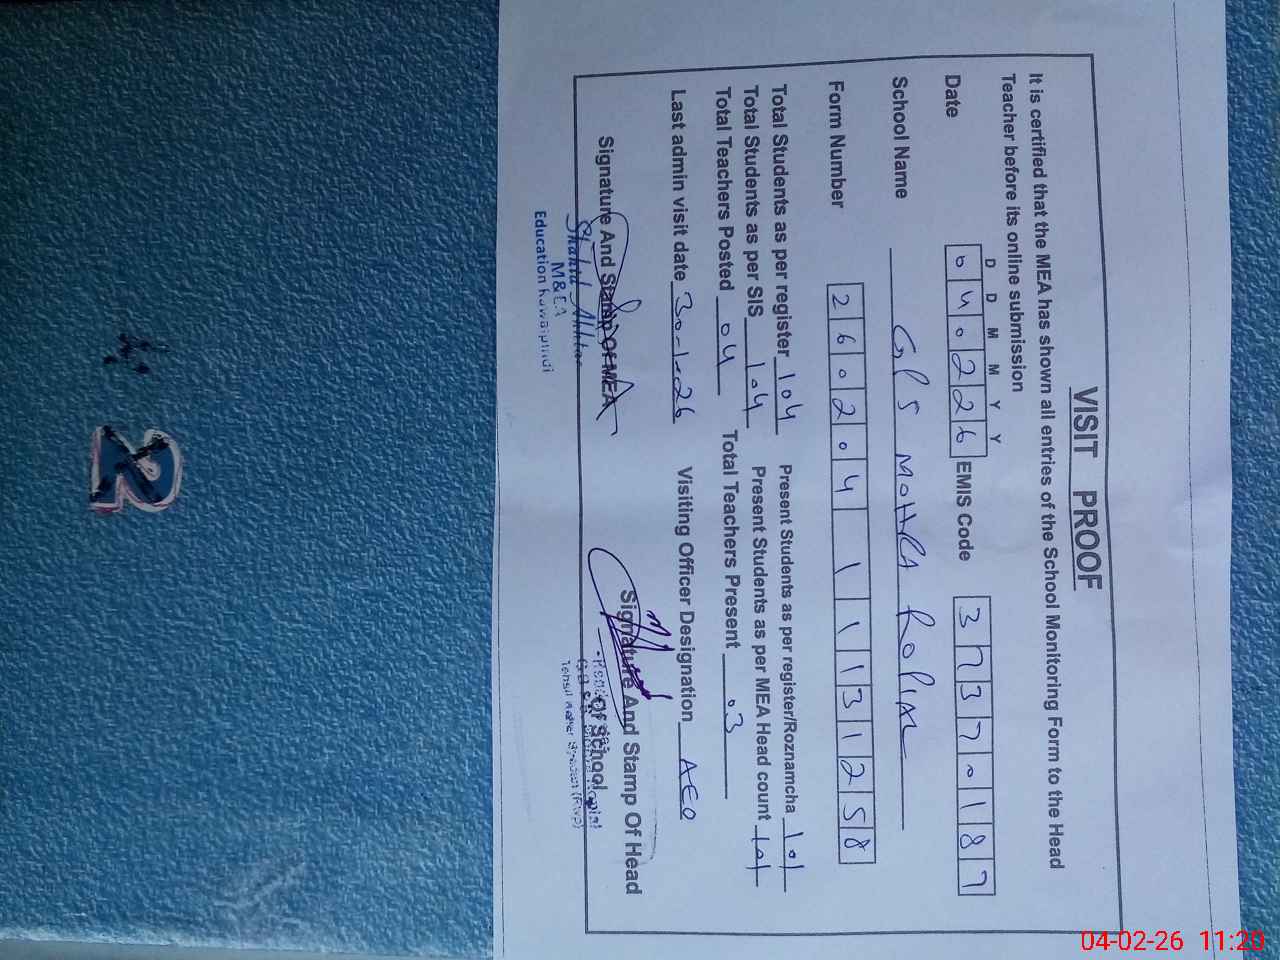 VISIT PROOF
It is certified that the MEA has shown all entries of the School Monitoring Form to the Head
Teacher before its online submission
D D M M Y Y
Date 040226 EMIS Code 37370187
School Name GPS MOHRA ROPIAL
Form Number 26020411131258
Total Students as per register 104 Present Students as per register/Roznamcha 101
Total Students as per SIS 104 Present Students as per MEA Head count 101
Total Teachers Posted 04 Total Teachers Present 03
Last admin visit date 30-1-26 Visiting Officer Designation AEO
Signature And Stamp Of MEA
Shahid Akhtar
M&EA
Education Rawalpindi
Signature And Stamp Of Head
Of School
2
04-02-26 11:20